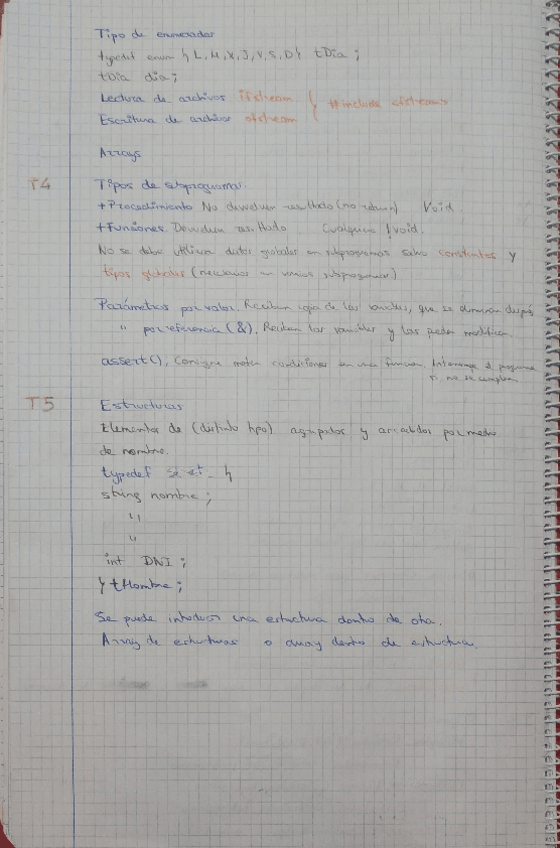 Tipo de enumerador
typedef enum { L, M, X, J, V, S, D } tDia ;
tDia dia ;
Lectura de archivos ifstream { #include <fstream>
Escritura de archivos ofstream
Arrays
T4 Tipos de subprograma.
+Procedimiento No devuelven resultado (no return) Void.
+Funciones. Devuelven resultado Cualquiera / void.
No se debe utilizar datos globales en subprogramas salvo constantes y
tipos globales (necesarios en varios subprogramas)
Parámetros por valor. Reciben copia de las variables, que se eliminan después
" por referencia (&). Reciben las variables y las pueden modificar.
assert(), Consigue meter condiciones en una función. Interrumpe el programa
si no se cumplen.
T5 Estructuras
Elementos de (distinto tipo) agrupados y accedidos por medio
de nombre.
typedef struct {
string nombre ;
"
"
int DNI ;
} tHombre ;
Se puede introducir una estructura dentro de otra.
Array de estructuras o array dentro de estructura.